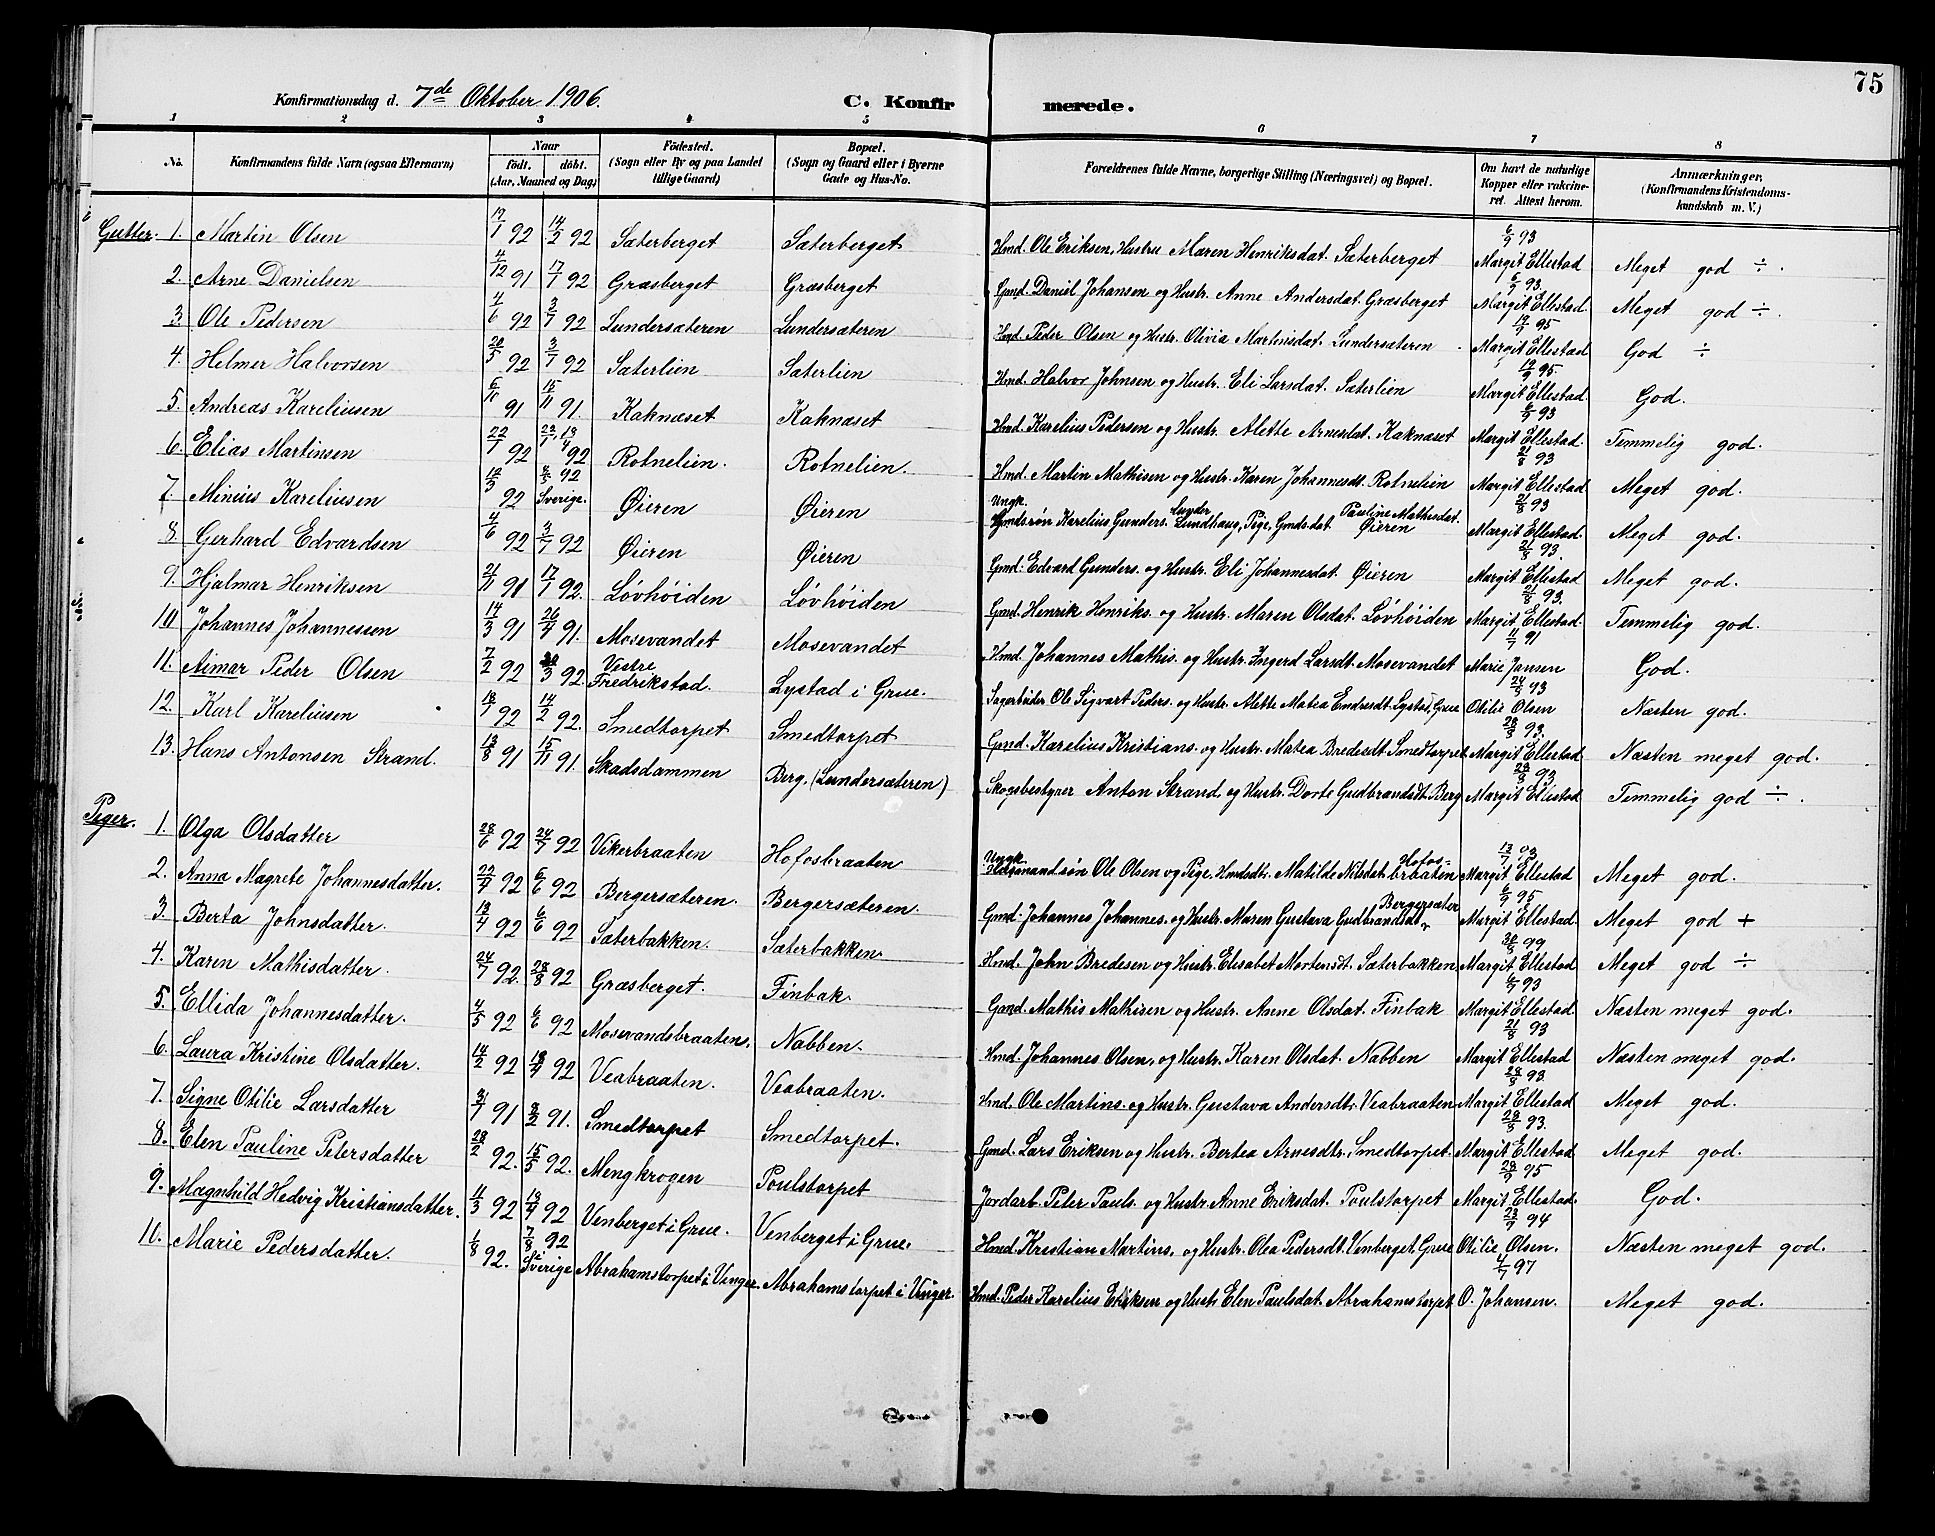 75
Konfirmationsdag d. 7de Oktober 1906. C. Konfir merede.
1 2 3 4 5 6 7 8
No. Konfirmandens fulde Navn (ogsaa Efternavn) Naar født, døbt. (Aar, Maaned og Dag) Födested. (Sogn eller By og paa Landet tillige Gaard) Bopæl. (Sogn og Gaard eller i Byerne Gade og Hus-No. Forældrenes fulde Navne, borgerlige Stilling (Næringsvei) og Bopæl. Om havt de naturlige Kopper eller vakcineret. Attest herom. Anmærkninger. (Konfirmandens Kristendomskundskab m. V.)
Gutter. 1. Martin Olsen 17/1 92 14/2 92 Sæterberget Sæterberget Hmd. Ole Eriksen, Hustru Maren Henriksdat. Sæterberget 6/9 93 Margit Ellestad Meget god ÷.
2. Arne Danielsen 4/12 91 17/1 92 Græsberget Græsberget Gmd. Daniel Johansen og Hustr. Anne Andersdat. Græsberget 6/9 93 Margit Ellestad. Meget god ÷.
3. Ole Pedersen 4/6 92 3/7 92 Lundersæteren Lundersæteren Hmd. Peder Olsen og Hustr. Olivia Martinsdat. Lundersæteren 95 Margit Ellestad God ÷
4. Helmer Halvorsen 20/5 92 3/7 92 Sæterlien Sæterlien Hmd. Halvor Johnsen og Hustr. Eli Larsdat. Sæterlien 95. Margit Ellestad. God.
5. Andreas Kareliusen 91 15/11 91. Kaknæset Kaknæset Hmd. Karelius Pedersen og Hustr. Alette Arnesdat. Kaknæset 6/9 93 Margit Ellestad. Temmelig god.
6. Elias Martinsen 22/1 92 92 Rotnelien. Rotnelien. Hmd. Martin Mathisen og Hustr. Karen Johannesdt. Rotnelien 21/8 93 Margit Ellestad Meget god.
7. Minius Kareliusen 92 92 Sverige. Øieren Øieren Ungk. Gmdssøn Karelius Gunders. Lunder Lundhaug, Pige, Gmdsdat Pauline Mathisdat. Øieren 21/8 93 Margit Ellestad. Meget god.
8. Gerhard Edvardsen 4/6 92 3/7 92 Øieren Øieren Gmd. Edvard Gunders. og Hustr. Eli Johannesdat. Øieren 21/8 93. Margit Ellestad. Meget god.
9. Hjalmar Henriksen 21/11 91 17/1 92. Løvhøiden Løvhøiden Gmd. Henrik Henriks. og Hustr. Maren Olsdat. Løvhøiden 21/8 93. Margit Ellestad. Temmelig god.
10 Johannes Johannessen 14/3 91 26/4 91. Mosevandet Mosevandet Hmd. Johannes Mathis. og Hustr. Ingerd Larsdt. Mosevandet 91 Marie Jansen God.
11. Aimar Peder Olsen 7/2 92 92. Vestre Fredrikstad. Lystad i Grue. Sagarbeider Ole Sigvart Peders. og Hustr. Alette Matea Endresdt. Lystad, Grue 93 Otilie Olsen Næsten god.
12. Karl Kareliusen 92 14/2 92. Smedtorpet Smedtorpet Gmd. Karelius Kristians. og Hustr. Matea Bredesdt. Smedtorpet 28/8 93. Margit Ellestad. Næsten meget god.
13. Hans Antonsen Strand. 13/8 91 15/11 91. Skadsdammen Berg. (Lundersæteren) Skogsbestyrer Anton Strand og Hustr. Dorte Gudbrandsdt. Berg 28/8 93 Margit Ellestad Temmelig god ÷.
Piger. 1. Olga Olsdatter 28/6 92 24/7 92 Vikerbraaten Hofosbraaten Ungk. Husmandssøn Ole Olsen og Pige, Hmdsdt. Matilde Nilsdat. Hofosbraaten 13/7 03 Margit Ellestad Meget god.
2. Anna Magrete Johannesdatter. 22/4 92 6/6 92 Bergersæteren. Bergersæteren. Gmd. Johannes Johannes. og Hustr. Maren Gustava Gudbrandsdat. Bergersæter 6/9 95 Margit Ellestad Meget god +
3. Berta Johnsdatter. 13/4 92 6/6 92 Sæterbakken. Sæterbakken. Hmd. John Bredesen og Hustr. Elisabet Mortensdt. Sæterbakken 99 Margit Ellestad Meget god ÷
4. Karen Mathisdatter. 24/7 92. 28/8 92 Græsberget. Finbak. Gmd. Mathis Mathisen og Hustr. Anne Olsdat. Finbak 6/9 93 Margit Ellestad Næsten meget god.
5. Ellida Johannesdatter. 4/5 92 6/6 92 Mosevandsbraaten. Nabben. Hmd. Johannes Olsen, og Hustr. Karen Olsdat. Nabben 21/8 93 Margit Ellestad Næsten meget god.
6. Laura Kristine Olsdatter. 14/2 92 18/4 92 Veabraaten. Veabraaten. Hmd. Ole Martins. og Hustr. Gustava Andersdt. Veabraaten 28/8 93. Margit Ellestad Meget god.
7. Signe Otilie Larsdatter 31/7 91 91. Smedtorpet Smedtorpet. Gmd. Lars Eriksen og Hustr. Bertea Arnesdtr. Smedtorpet. 28/8 93. Margit Ellestad Meget god.
8. Elen Pauline Petersdatter 28/2 92. 15/5 92. Mengkrogen Poulstorpet Jordarb. Peter Pauls. og Hustr. Anne Eriksdat. Poulstorpet 28/9 95 Margit Ellestad. God.
9. Magnhild Hedvig Kristiansdatter. 11/3 92 18/4 92 Venberget i Grue. Venberget i Grue. Hmd. Kristian Martins. og Hustr. Olea Pedersdt. Venberget Grue 23/9 94 Otilie Olsen. Næsten meget god.
10. Marie Pedersdatter. 1/8 92. 7/8 92 i Sverige Abrahamstorpet i Vinger. Abrahamstorpet i Vinger. Hmd. Peder Karelius Eriksen og Hustr Elen Paulsdat. Abrahamstorpet 97 O. Johansen. Meget god.